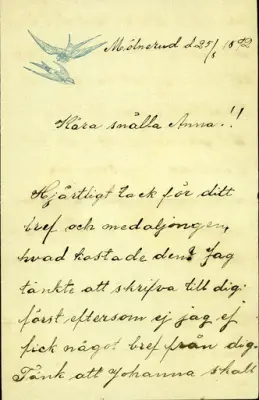 Mölnerud d 25/8 1892
Kära snälla Anna!!
Hjärtligt tack för ditt
bref och medaljongen,
hvad kostade den? Jag
tänkte att skrifva till dig
först eftersom ej jag ej
fick något bref från dig.
Tänk att Johanna skall